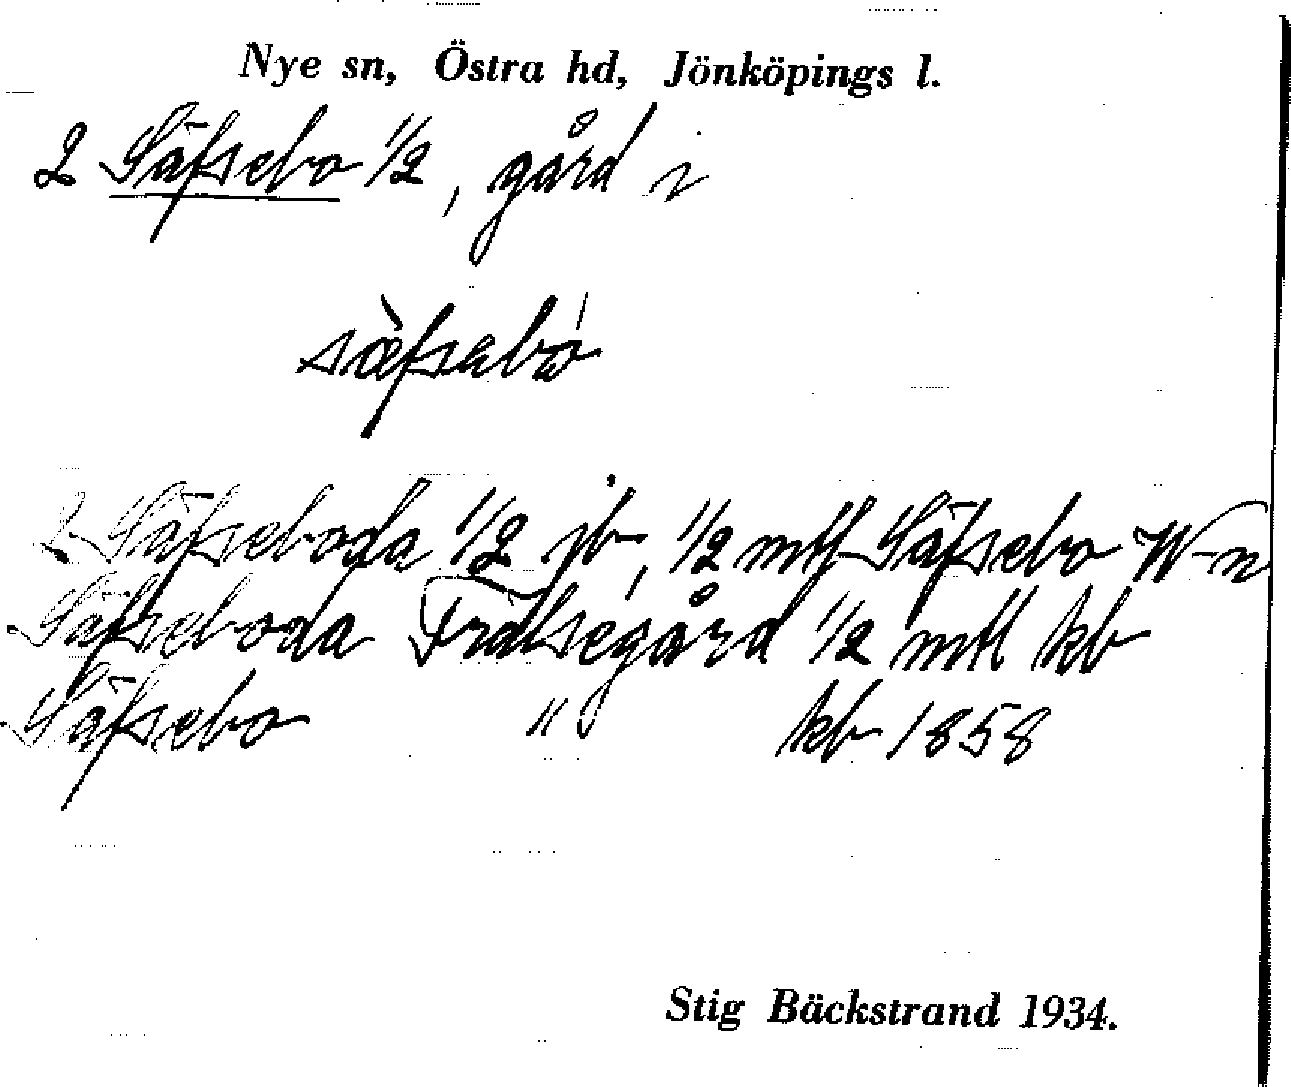 Nye sn, Östra hd, Jönköpings l.
2 Säfsebo 1/2, gård i
sæ̀fsebó
2 Säfseboda 1/2 jb, 1/2 mtl Säfsebo W-n
Säfseboda Frälsegård 1/2 mtl kb
Säfsebo " kb 1858
Stig Bäckstrand 1934.